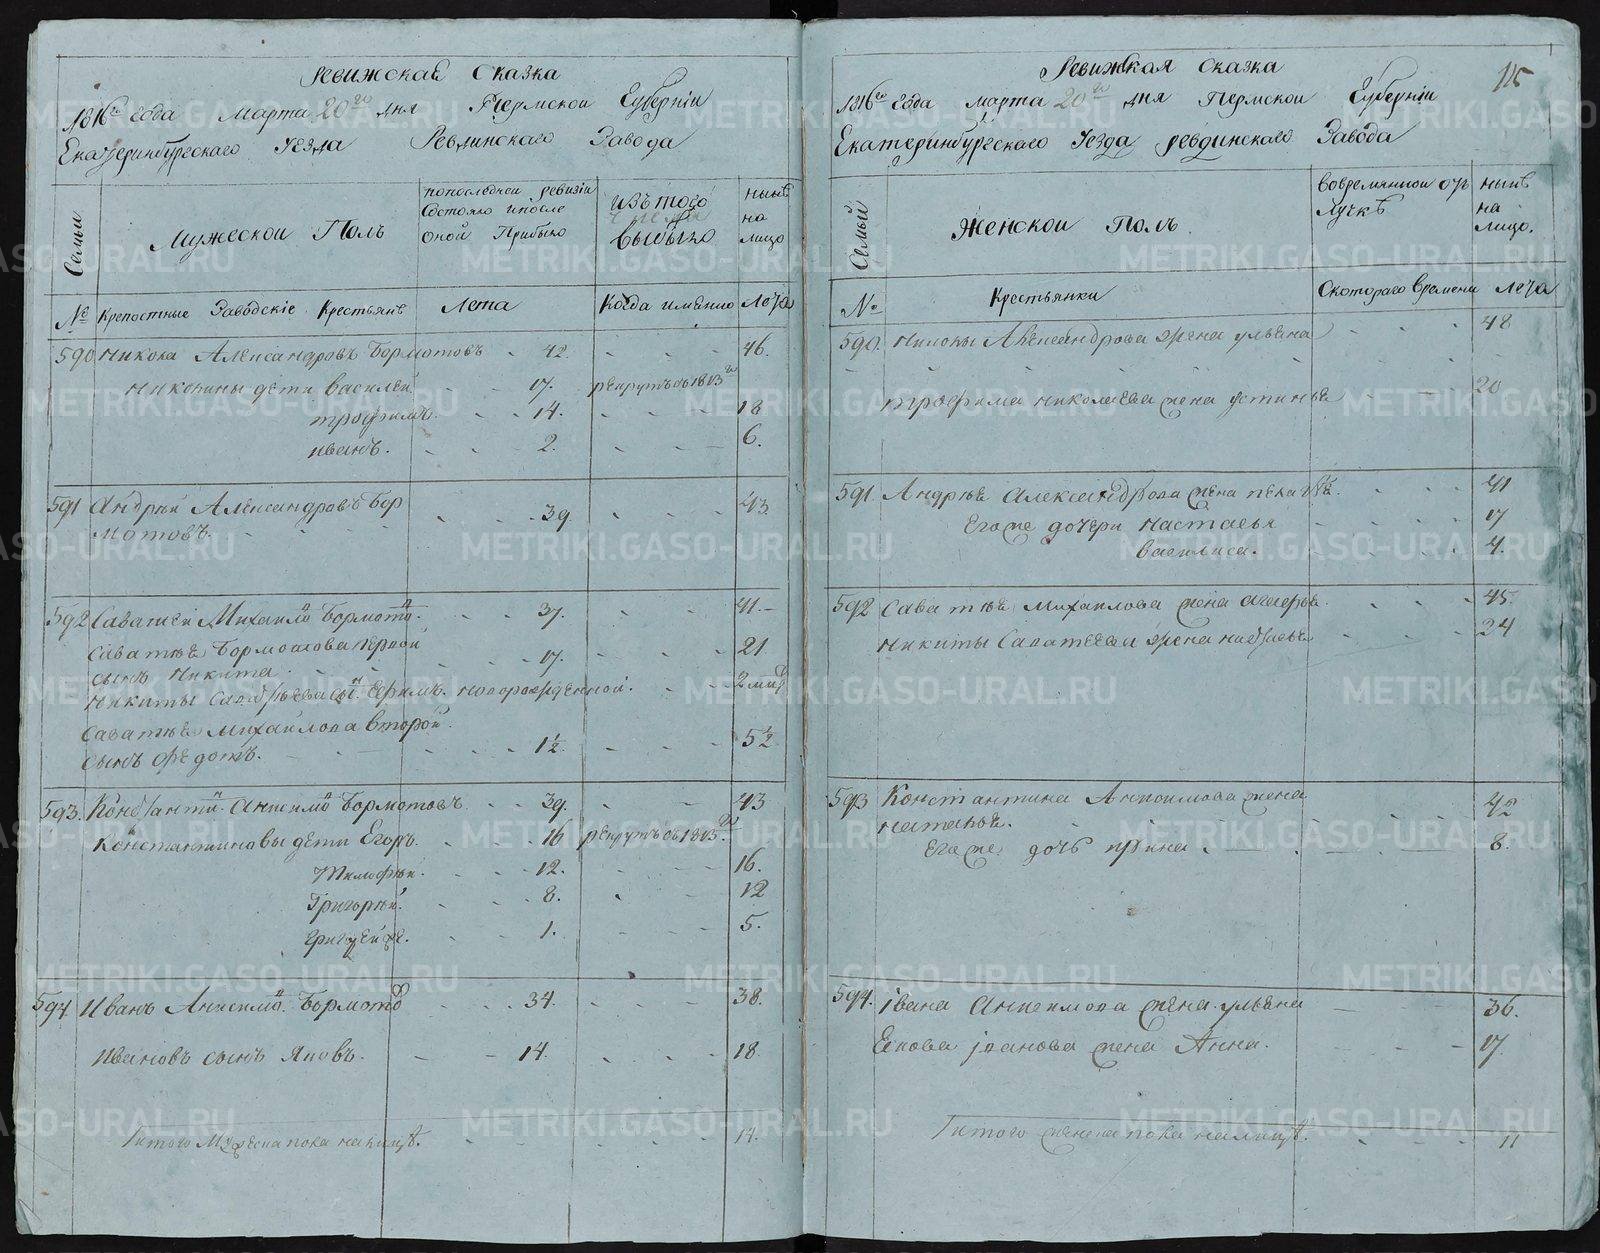 Ревижская Сказка
1816го Года Марта 20го дня Пермской Губернiи
Екатеринбургскаго Уезда Ревдинскаго Завода
Семьи
Мужескои Полъ
попоследнеи ревизiи
Состояло ипосле
Оной Прибыло
Изътого
Числа
выбыло
Нынѣ
на
лицо
№ Крепостные Заводскiе Крестьянѣ Лета Когда имянно Лета
590 Никона Алексндровъ Бормотовъ 42. 46.
Никонины дети Василеи 17. рекрутъ съ 1813го
трофимъ. 14. 18
иванъ. 2. 6.
591 Андрѣи Александровъ Бор 39 43.
мотовъ.
592 Саватеи Михаило Бормото. 37. 41.
Саватѣя Бормотова первои
сынъ Никита 17. 21
Никиты Саватѣева сы. Ефимъ. новорожденной. 2 миц
Саватѣя Михаилова второй
сынъ Федотъ. 1½. 5½
593. Константи. Анисимо Бормотовъ 39. 43
Константиновы дети Егоръ. 16 рекрутъ съ 1813го
Тимофѣи. 12. 16.
Григорѣй. 8. 12
Григорей же. 1. 5.
594. Иванъ Анисимо. Бормото 34. 38.
Ивановъ сынъ Яковъ. 14. 18.
Итого Мужеска пола налицѣ. 14.
115
Ревижская Сказка
1816го Года Марта 20го дня Пермской Губернiи
Екатеринбургскаго Уезда ревдинскаго Завода
Семьи
Женскои Полъ
вовремяннои отъ
лучкѣ
Нынѣ
на
лицо.
№ Крестьянки Скотораго времени Лета
590. Никоны Александрова жена ульяна 48
трофима николаева жена устинья 20
591. Андрѣя Александрова жена пелагѣя. 41
Егоже дочери Настасья 17
василиса. 4.
592 Саватѣя Михаилова жена агафья 45.
Никиты Саватѣева жена 24
593 Константина Анисимова жена 42
наталья.
Егоже дочь ирина. 8.
594. Iвана Анисимова жена ульяна 36.
Екова iванова жена Анна. 17
Итого женска пола налицѣ. 11
METRIKI.GASO-URAL.RU